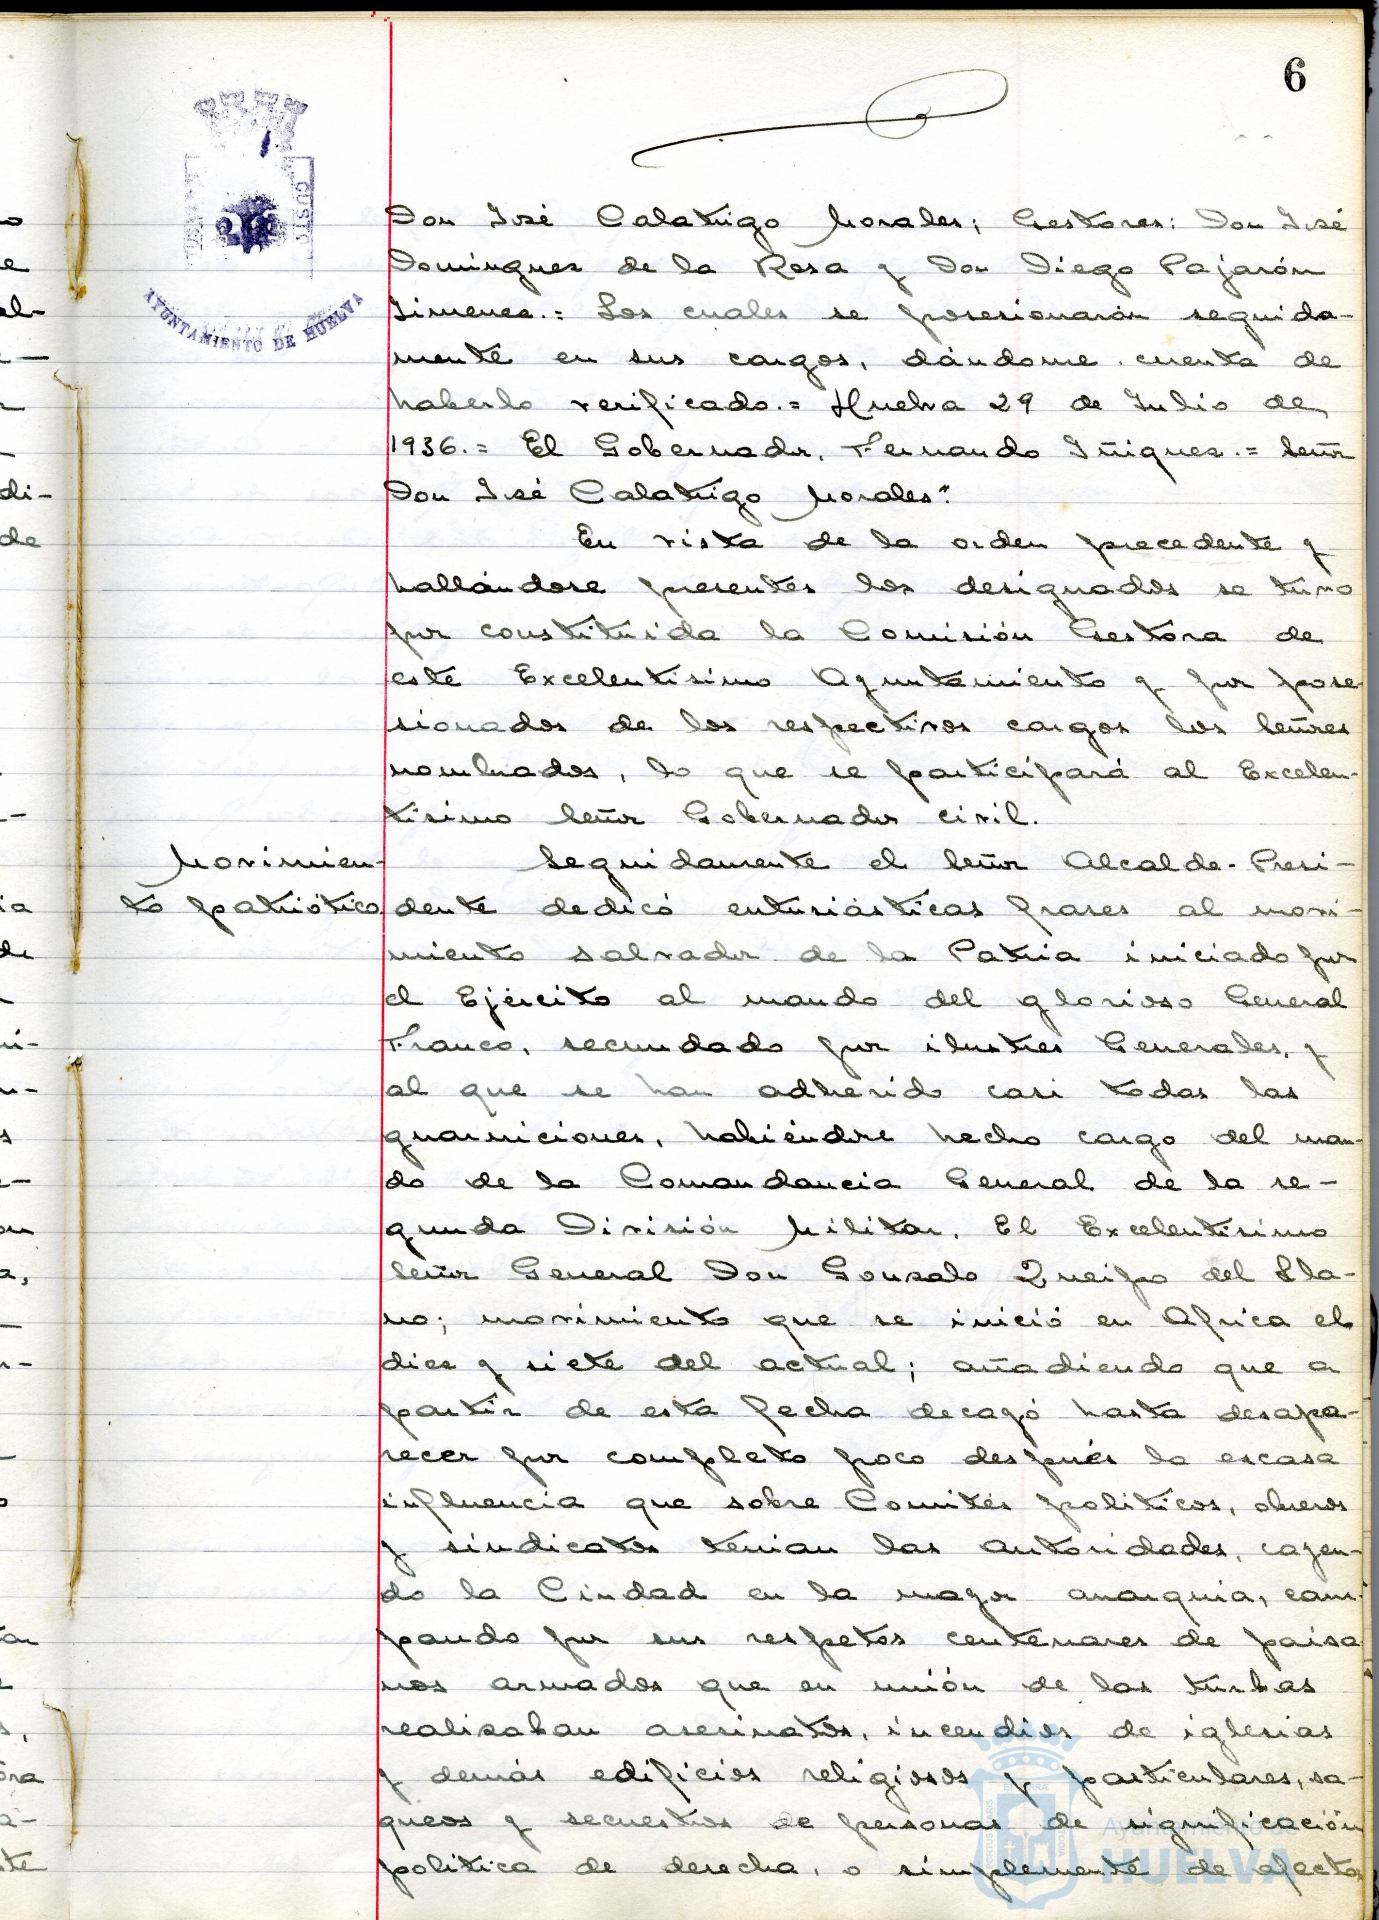 6
AYUNTAMIENTO DE HUELVA
Don José Calatrigo Morales; Gestores: Don José
Dominguez de la Rosa y Don Diego Pajarón
Jimenez.= Los cuales se posesionarón seguida-
mente en sus cargos, dándome cuenta de
haberlo verificado.= Huelva 29 de Julio de
1936.= El Gobernador, Fernando Iñiguez.= Señor
Don José Calatrigo Morales".
En vista de la orden precedente y
hallándose presentes los designados se tuvo
por constituida la Comisión Gestora de
este Excelentisimo Ayuntamiento y por pose
sionados de los respectivos cargos los señores
nombrados, lo que se participará al Excelen-
tisimo Señor Gobernador civil.
Movimien-
to patriótico
Seguidamente el Señor Alcalde-Presi-
dente dedicó entusiásticas frases al movi-
miento salvador de la Patria iniciado por
el Ejército al mando del glorioso General
Franco, secundado por ilustres Generales, y
al que se han adherido casi todas las
guarniciones, habiéndose hecho cargo del man-
do de la Comandancia General de la se-
gunda División Militar, El Excelentisimo
Señor General Don Gonzalo Queipo del Lla-
no; movimiento que se inició en Africa el
diez y siete del actual; añadiendo que a
partir de esta fecha decayó hasta desapa-
recer por completo poco después la escasa
influencia que sobre Comités politicos, obreros
y sindicatos tenian las autoridades, cayen-
do la Ciudad en la mayor anarquia, cam-
pando por sus respetos centenares de paisa
nos armados que en unión de las turbas
realizaban asesinatos, incendios de iglesias
y demás edificios religiosos y particulares, sa-
queos y secuestros de personas de significación
politica de derecha, o simplemente de afectos
Ayuntamiento de
HUELVA